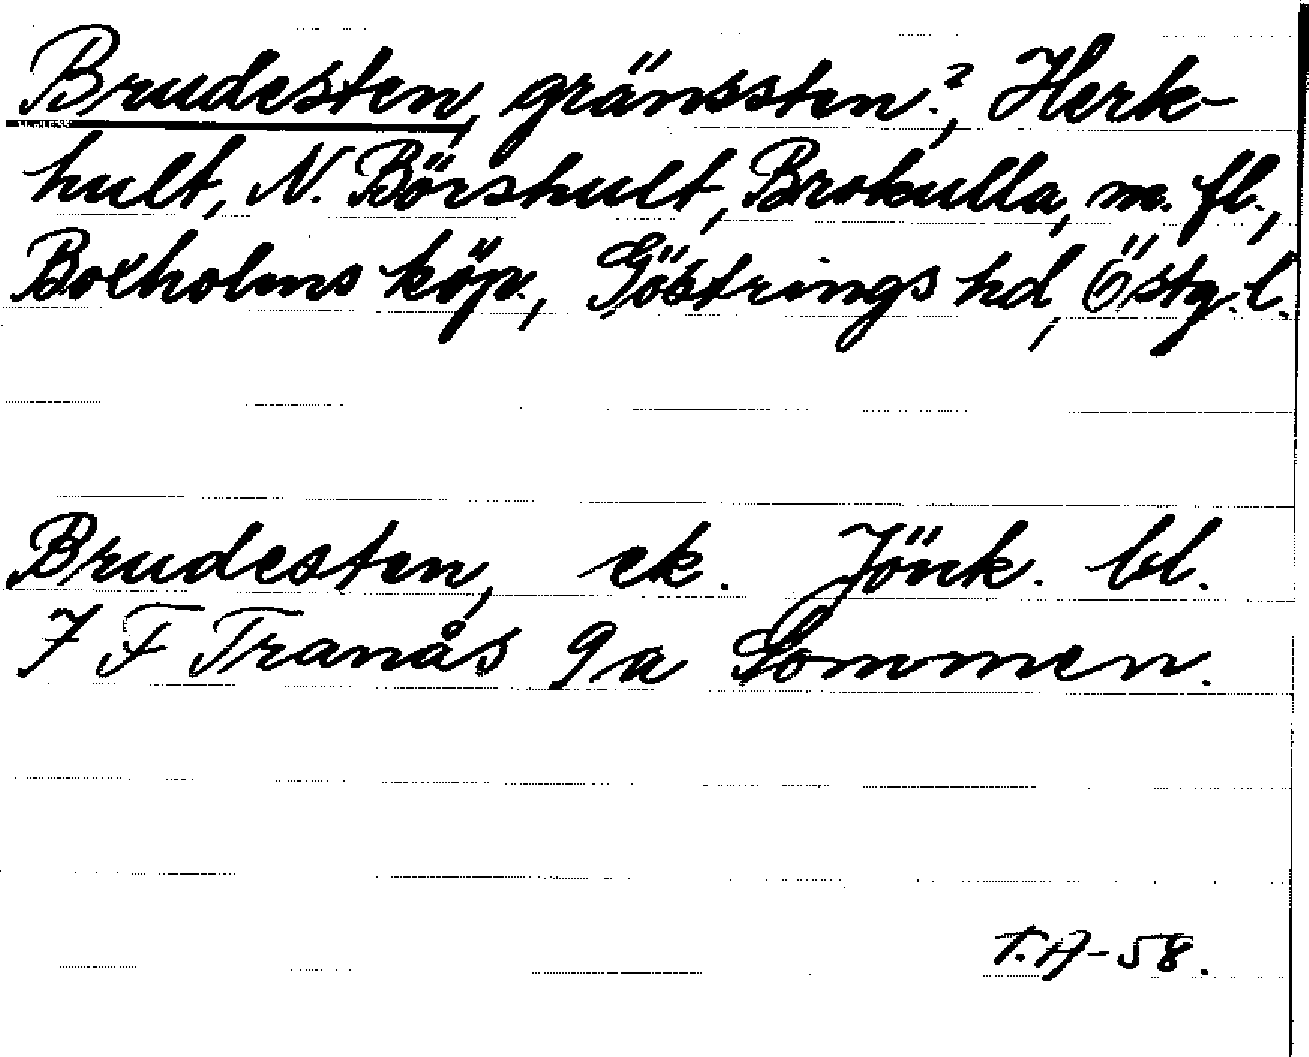 Brudesten, gränssten?, Herk-
hult, N. Börshult, Brokulla, m. fl.,
Boxholms köp., Göstrings hd, Östg. l.
Brudesten, ek. Jönk. bl.
7 F Tranås 9a Sommen.
T.A-58.